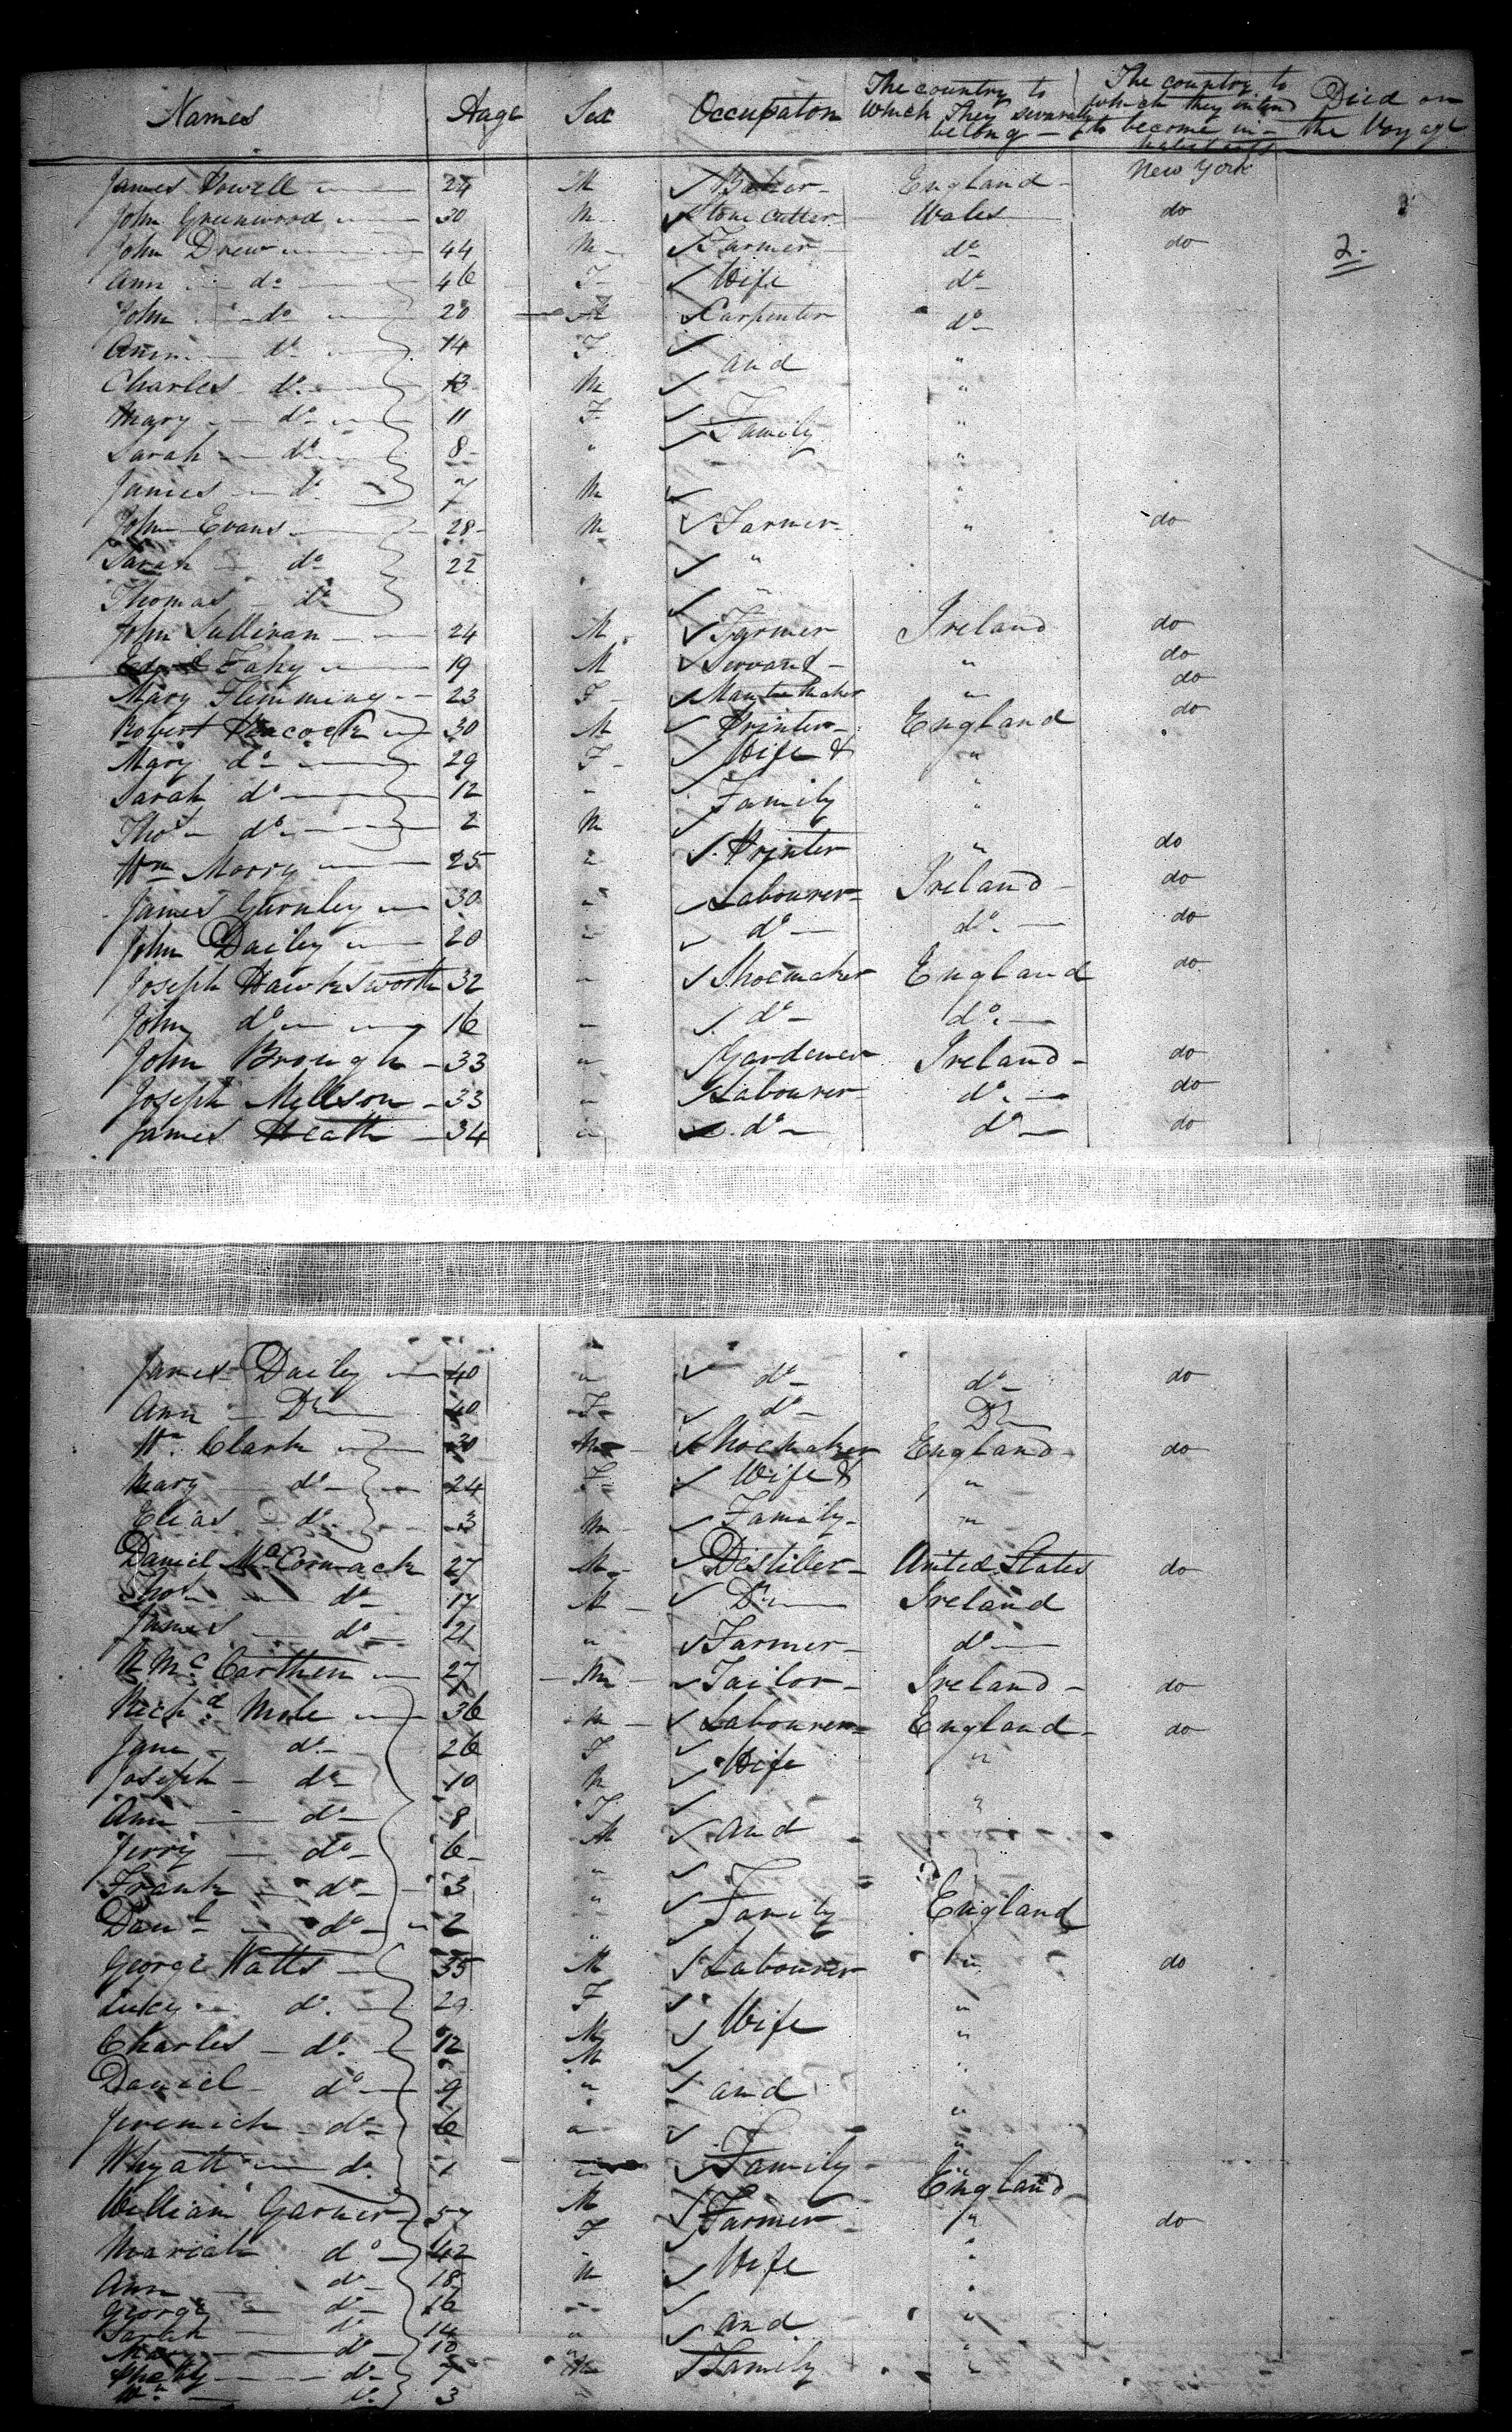 Names Aage Sex Occupaton The country to which They severally belong — The country to which they intend to become inhabitants Died on the Voyage
James Powell 24 M Baker England New York
John Greenwood 30 M Stone Cutter Wales do
John Drew 44 M Farmer do do 2.
Ann do 46 F Wife do
John do 20 M Carpenter do
Ann do 14 F "
Charles do 13 M and "
Mary do 11 F "
Sarah do 8 " Family "
James do 7 M "
John Evans 28 M Farmer " do
Sarah do 22 "
Thomas do "
John Sullivan 24 M Farmer Ireland do
Edwd Fahy 19 M Servant " do
Mary Flemming 23 F Mantu Maker " do
Robert Peacock 30 M Printer England do
Mary do 29 F Wife & "
Sarah do 12 " Family "
Thos do 2 M "
Wm Morry 25 " Printer " do
James Gurnley 30 " Labourer Ireland do
John Dailey 20 " do do do
Joseph Hawksworth 32 " Shoemaker England do
John do 16 " do do
John Brough 33 " Gardener Ireland do
Joseph Mellson 33 " Labourer do do
James Heath 34 " do do do
James Dailey 40 " do do do
Ann Do 40 F do Do
Wm Clark 30 M Shoemaker England do
Mary do 24 F Wife & "
Elias do 3 M Family "
Daniel McCormack 27 M Distiller United States do
Thos do 17 M Do Ireland
James do 21 " Farmer do
McCarthen 27 M Tailor Ireland do
Richd Mole 36 M Labourer England do
Jane do 26 F Wife "
Joseph do 10 M
Ann do 8 F "
Jerry do 6 M and
Frank do 3 "
Danl do 2 " Family England
George Watts 35 M Labourer " do
Lucy do 29 F "
Charles do 12 M Wife "
Daniel do 9 M and
Jeremiah do 6 " "
Whyatt do 1 " Family "
William Garner 57 M Farmer England do
Mariah do 42 F Wife "
Ann do 18
George do 16 M
Sarah do 14 " and "
do 10
do 7 M Family "
Wm do 3 "